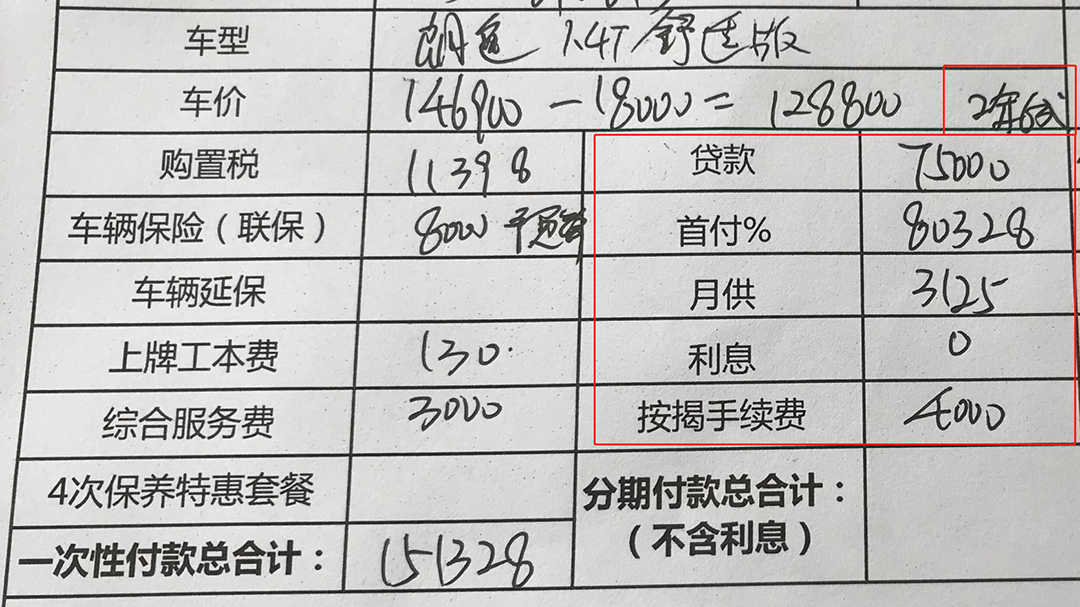 车型 朗逸 1.4T舒适版
车价 146900-18000=128800 2年
购置税 11398 贷款 75000
车辆保险（联保） 8000 首付% 80328
车辆延保 月供 3125
上牌工本费 130. 利息 0
综合服务费 3000 按揭手续费 4000
4次保养特惠套餐 分期付款总合计：
（不含利息）
一次性付款总合计： 151328